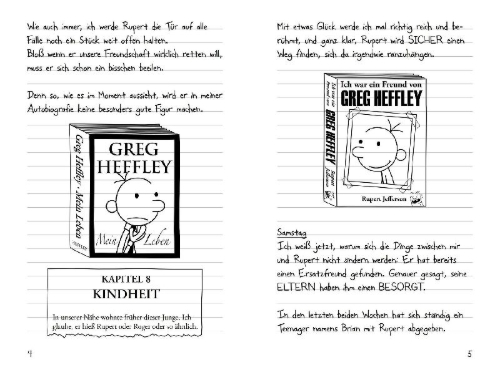 Wie auch immer, ich werde Rupert die Tür auf alle
Fälle noch ein Stück weit offen halten.
Bloß wenn er unsere Freundschaft wirklich retten will,
muss er sich schon ein bisschen beeilen.
Denn so, wie es im Moment aussieht, wird er in meiner
Autobiografie keine besonders gute Figur machen.
Greg Heffley · Mein Leben
GREG
HEFFLEY
Mein Leben
KAPITEL 8
KINDHEIT
In unserer Nähe wohnte früher dieser Junge. Ich
glaube, er hieß Rupert oder Roger oder so ähnlich.
4
Mit etwas Glück werde ich mal richtig reich und be-
rühmt, und ganz klar, Rupert wird SICHER einen
Weg finden, sich da irgendwie ranzuhängen.
Ich war ein Freund von
GREG HEFFLEY
Ich war ein Freund von
GREG HEFFLEY
Rupert Jefferson
Rupert Jefferson
Samstag
Ich weiß jetzt, warum sich die Dinge zwischen mir
und Rupert nicht ändern werden: Er hat bereits
einen Ersatzfreund gefunden. Genauer gesagt, seine
ELTERN haben ihm einen BESORGT.
In den letzten beiden Wochen hat sich ständig ein
Teenager namens Brian mit Rupert abgegeben.
5